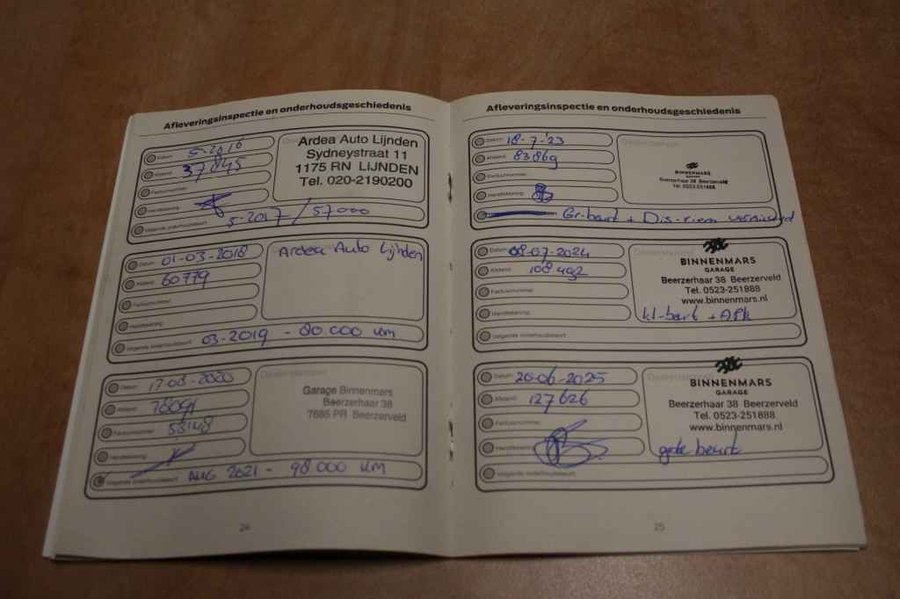 Afleveringsinspectie en onderhoudsgeschiedenis
Datum 5-2016
Afstand 37845
Factuurnummer
Handtekening
Volgende onderhoudsbeurt 5-2017 / 57000
Ardea Auto Lijnden
Sydneystraat 11
1175 RN LIJNDEN
Tel. 020-2190200
Datum 01-03-2018
Afstand 60779
Factuurnummer
Handtekening
Volgende onderhoudsbeurt 03-2019 - 80.000 km
Ardea Auto Lijnden
Datum 17-08-2020
Afstand 78091
Factuurnummer 53148
Handtekening
Volgende onderhoudsbeurt AUG 2021 - 98.000 km
Garage Binnenmars
Beerzerhaar 38
7685 PR Beerzerveld
24
Afleveringsinspectie en onderhoudsgeschiedenis
Datum 18-7-'23
Afstand 83869
Factuurnummer
Handtekening
Gr. beurt + Dis. riem
BINNENMARS
GARAGE
Beerzerhaar 38 Beerzerveld
Tel. 0523-251888
Datum 08-07-2024
Afstand 108492
Factuurnummer
Handtekening
Volgende onderhoudsbeurt
BINNENMARS
GARAGE
Beerzerhaar 38 Beerzerveld
Tel. 0523-251888
www.binnenmars.nl
kl-beurt + APK
Datum 26-06-2025
Afstand 127626
Factuurnummer
Handtekening
Volgende onderhoudsbeurt
BINNENMARS
GARAGE
Beerzerhaar 38 Beerzerveld
Tel. 0523-251888
www.binnenmars.nl
grote beurt
25